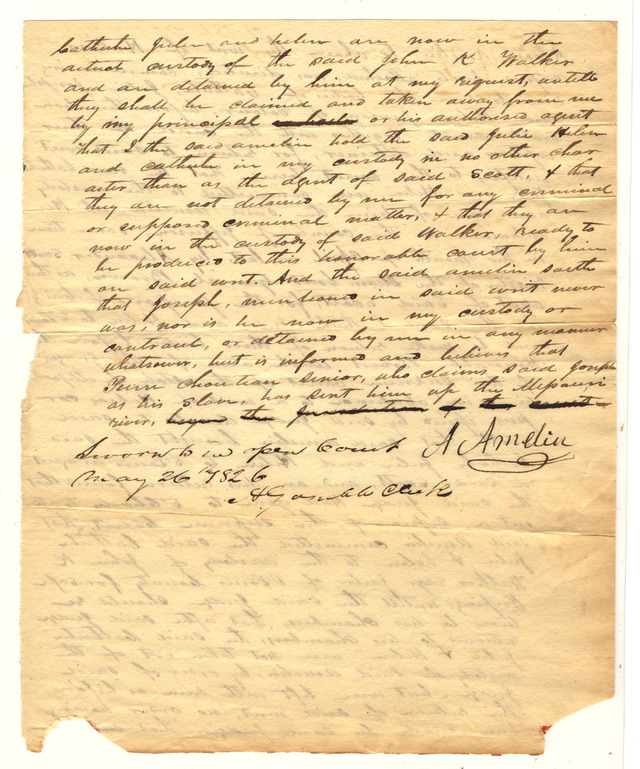 Cathuhe Julia and helen are now in the
actual custody of the said John K Walker
and are detained by him at my request, untill
they shall be claimed and taken away from me
by my principal or his authorised agent
that I the said amelin hold the said Julia Helen
and cathuhe in my custody in no other char
acter than as the agent of said Scott, & that
they are not detained by me for any criminal
or supposed criminal matter, & that they are
now in the custody of said Walker, ready to
be produced to this honorable court by him
on said writ. And the said amelin saith
that Joseph, mentioned in said writ never
was, nor is he now in my custody or
controul, or detained by me in any manner
whatsoever, but is informed and believes that
Pierre Choutian senior, who claims said Joseph
as his slave, has sent him up the Missouri
river, the of the
Sworn to in open Court A Amelin
May 26th 1826
A Gamble Clerk